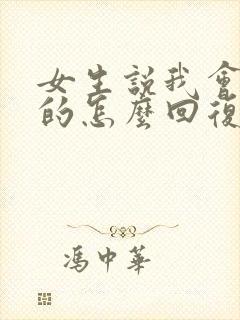 女生説我會
的怎麼回復
馮中華